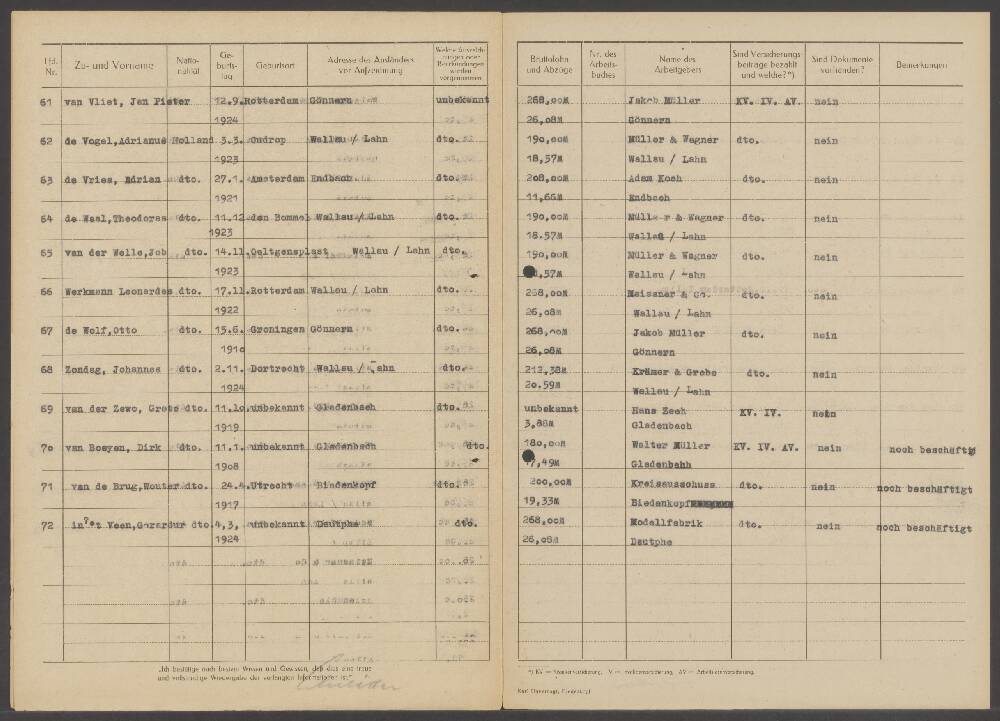 Lfd. Nr. Zu- und Vorname Natio- nalität Ge- burts- tag Geburtsort Adresse des Ausländers vor Aufzeichnung
61 van Vliet, Jan Pieter 12.9. Rotterdam Gönnern unbekannt
1924
62 de Vogel, Adrianus Holland 3.3. Oudrop Wallau / Lahn dto.
1923
63 de Vries, Adrian dto. 27.1. Amsterdam Endbach dto.
1921
64 de Waal, Theodoras dto. 11.12 den Bommel Wallau / Lahn dto.
1923
65 van der Welle, Job dto. 14.11. Oeltgensplast Wallau / Lahn dto.
1923
66 Werkmann Leonardes dto. 17.11. Rotterdam Wallau / Lahn dto.
1922
67 de Wolf, Otto dto. 15.6. Groningen Gönnern dto.
1910
68 Zondag, Johannes dto. 2.11. Dortrecht Wallau / Lahn dto.
1924
69 van der Zewo, Grete dto. 11.10. unbekannt Gladenbach dto.
1919
70 van Boeyen, Dirk dto. 11.1. unbekannt Gladenbach dto.
1908
71 van de Brug, Wouter dto. 24.4. Utrecht Biedenkopf dto.
1917
72 in?et Veen, Gerardur dto. 4,3, unbekannt Dautphe dto.
1924
„Ich bestätige nach bestem Wissen und Gewissen, daß dies eine treue
und vollständige Wiedergabe der verlangten Informationen ist."
Bruttolohn und Abzüge Nr. des Arbeits- buches Name des Arbeitgebers Sind Versicherungs- beiträge bezahlt und welche?*) Sind Dokumente vorhanden? Bemerkungen
268,00M Jakob Müller KV. IV. AV. nein
26,08M Gönnern
190,00M Müller & Wagner dto. nein
18,57M Wallau / Lahn
208,00M Adam Koch dto. nein
11,66M Endbach
190,00M Müller & Wagner dto. nein
18.57M Wallau / Lahn
190,00M Müller & Wagner dto. nein
,57M Wallau / Lahn
268,00M Meissner & Co. dto. nein
26,08M Wallau / Lahn
268,00M Jakob Müller dto. nein
26,08M Gönnern
212,38M Krämer & Grebe dto. nein
20.59M Wallau / Lahn
unbekannt Hans Zeeh KV. IV. nein
3,88M Gladenbach
180,00M Walter Müller KV. IV. AV. nein noch beschäft
17,49M Gladenbahh
200,00M Kreisausschuss dto. nein noch beschäftigt
19,33M Biedenkopf
268,00M Modellfabrik dto. nein noch beschäftigt
26,08M Dautphe
*) KV = Krankenversicherung, IV = Invalidenversicherung, AV = Arbeitslosenversicherung.